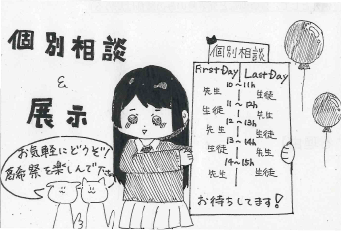 個別相談
&
展示
お気軽にどうぞ!
祭を楽しんで下さい
個別相談
First Day Last Day
10~11h
先生 生徒
11~12h
生徒 先生
12~13h
先生 生徒
13~14h
生徒 先生
14~15h
先生 生徒
お待ちしてます!